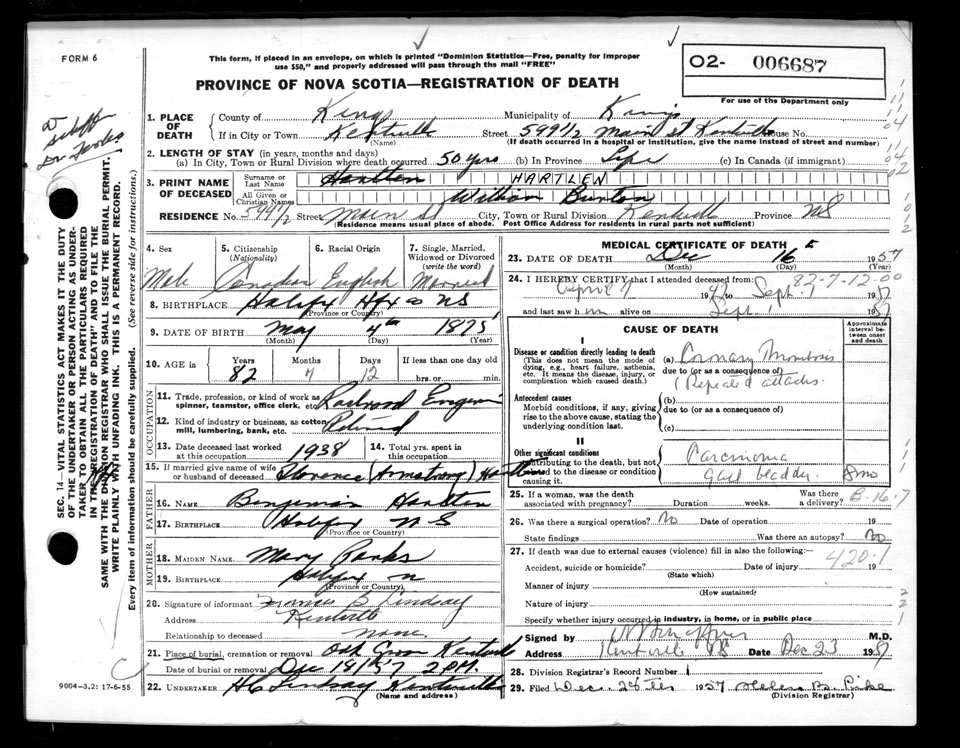 FORM 6
This form, if placed in an envelope, on which is printed "Dominion Statistics—Free, penalty for improper
use $50," and properly addressed will pass through the mail "FREE"
PROVINCE OF NOVA SCOTIA—REGISTRATION OF DEATH
O2- 006687
For use of the Department only
1. PLACE OF DEATH
County of Kings Municipality of Kings
If in City or Town Kentville Street 599 1/2 Main St Kentville House No.
(Name) (If death occurred in a hospital or institution, give the name instead of street and number)
2. LENGTH OF STAY (in years, months and days)
(a) In City, Town or Rural Division where death occurred 50 yrs (b) In Province Life (c) In Canada (if immigrant)
3. PRINT NAME OF DECEASED
Surname or Last Name HARTLEW
All Given or Christian Names William Burton
RESIDENCE No. 599 1/2 Street Main St City, Town or Rural Division Kentville Province NS
(Residence means usual place of abode. Post Office Address for residents in rural parts not sufficient)
4. Sex
5. Citizenship (Nationality)
6. Racial Origin
7. Single, Married, Widowed or Divorced (write the word)
Male Canadian English Married
8. BIRTHPLACE Halifax Hfx Co NS
(Province or Country)
9. DATE OF BIRTH May 4th 1875
(Month) (Day) (Year)
10. AGE in
Years Months Days If less than one day old
82 7 12 hrs. or min.
OCCUPATION
11. Trade, profession, or kind of work as spinner, teamster, office clerk, etc. Railroad Engineer
12. Kind of industry or business, as cotton mill, lumbering, bank, etc. Retired
13. Date deceased last worked at this occupation 1938
14. Total yrs. spent in this occupation
15. If married give name of wife or husband of deceased Florence (Armstrong)
FATHER
16. Name Benjamin
17. Birthplace Halifax NS
(Province or Country)
MOTHER
18. Maiden Name Mary Parks
19. Birthplace Halifax
(Province or Country)
20. Signature of informant Francis B Lindsay
Address Kentville
Relationship to deceased none.
21. Place of burial, cremation or removal Oak Grove Kentville
Date of burial or removal Dec 18/57 2 PM.
22. UNDERTAKER H C Lindsay Kentville
(Name and address)
MEDICAL CERTIFICATE OF DEATH
23. DATE OF DEATH Dec 16 1957
(Month) (Day) (Year)
24. I HEREBY CERTIFY that I attended deceased from:
82-7-12-00
April 7 Sept. 1957
and last saw him alive on Sept. 1 1957
CAUSE OF DEATH
Approximate interval between onset and death
I
Disease or condition directly leading to death
(This does not mean the mode of dying, e.g., heart failure, asthenia, etc. It means the disease, injury, or complication which caused death.)
(a) Coronary Thrombosis
due to (or as a consequence of)
(Repeated attacks.
Antecedent causes
Morbid conditions, if any, giving rise to the above cause, stating the underlying condition last.
(b)
due to (or as a consequence of)
(c)
II
Other significant conditions
contributing to the death, but not related to the disease or condition causing it.
Carcinoma
Gall bladder 8 mo
25. If a woman, was the death associated with pregnancy? Duration weeks. Was there a delivery? B-16-7
26. Was there a surgical operation? No Date of operation 19
State findings Was there an autopsy? No
27. If death was due to external causes (violence) fill in also the following:—
Accident, suicide or homicide? Date of injury 19
(State which)
420.1
Manner of injury
(How sustained)
Nature of injury
Specify whether injury occurred in industry, in home, or in public place
Signed by M.D.
Address Kentville NS Dec 23 1957
28. Division Registrar's Record Number
29. Filed Dec. 28th 1957 Helen B. Pike
(Division Registrar)
SEC. 14—VITAL STATISTICS ACT MAKES IT THE DUTY
OF THE UNDERTAKER OR PERSON ACTING AS UNDER-
TAKER TO OBTAIN ALL THE PARTICULARS REQUIRED
IN THE "REGISTRATION OF DEATH" AND TO FILE THE
SAME WITH THE DIVISION REGISTRAR WHO SHALL ISSUE THE BURIAL PERMIT.
WRITE PLAINLY WITH UNFADING INK. THIS IS A PERMANENT RECORD.
Every item of information should be carefully supplied. (See reverse side for instructions.)
9004-3.2: 17-6-55